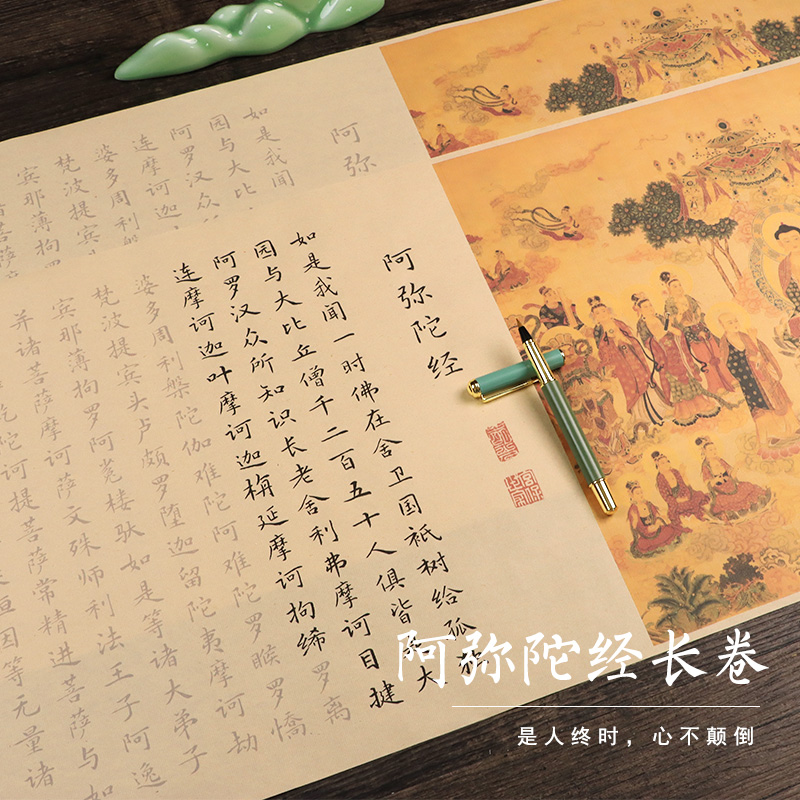 阿弥
如是我闻
园与大比
阿罗汉众
连摩诃迦
婆多周利
梵波提宾
宾那薄拘
诸菩萨
阿弥陀经
如是我闻一时佛在舍卫国祇树给孤
园与大比丘僧千二百五十人俱皆大
阿罗汉众所知识长老舍利弗摩诃目犍
连摩诃迦叶摩诃迦栴延摩诃拘絺罗离
婆多周利槃陀伽难陀阿难陀罗睺罗憍
梵波提宾头卢颇罗堕迦留陀夷摩诃劫
宾那薄拘罗阿㝹楼驮如是等诸大弟子
并诸菩萨摩诃萨文殊师利法王子阿逸
陀诃提菩萨常精进菩萨与如
桓因等无量诸
阿弥陀经长卷
是人终时，心不颠倒